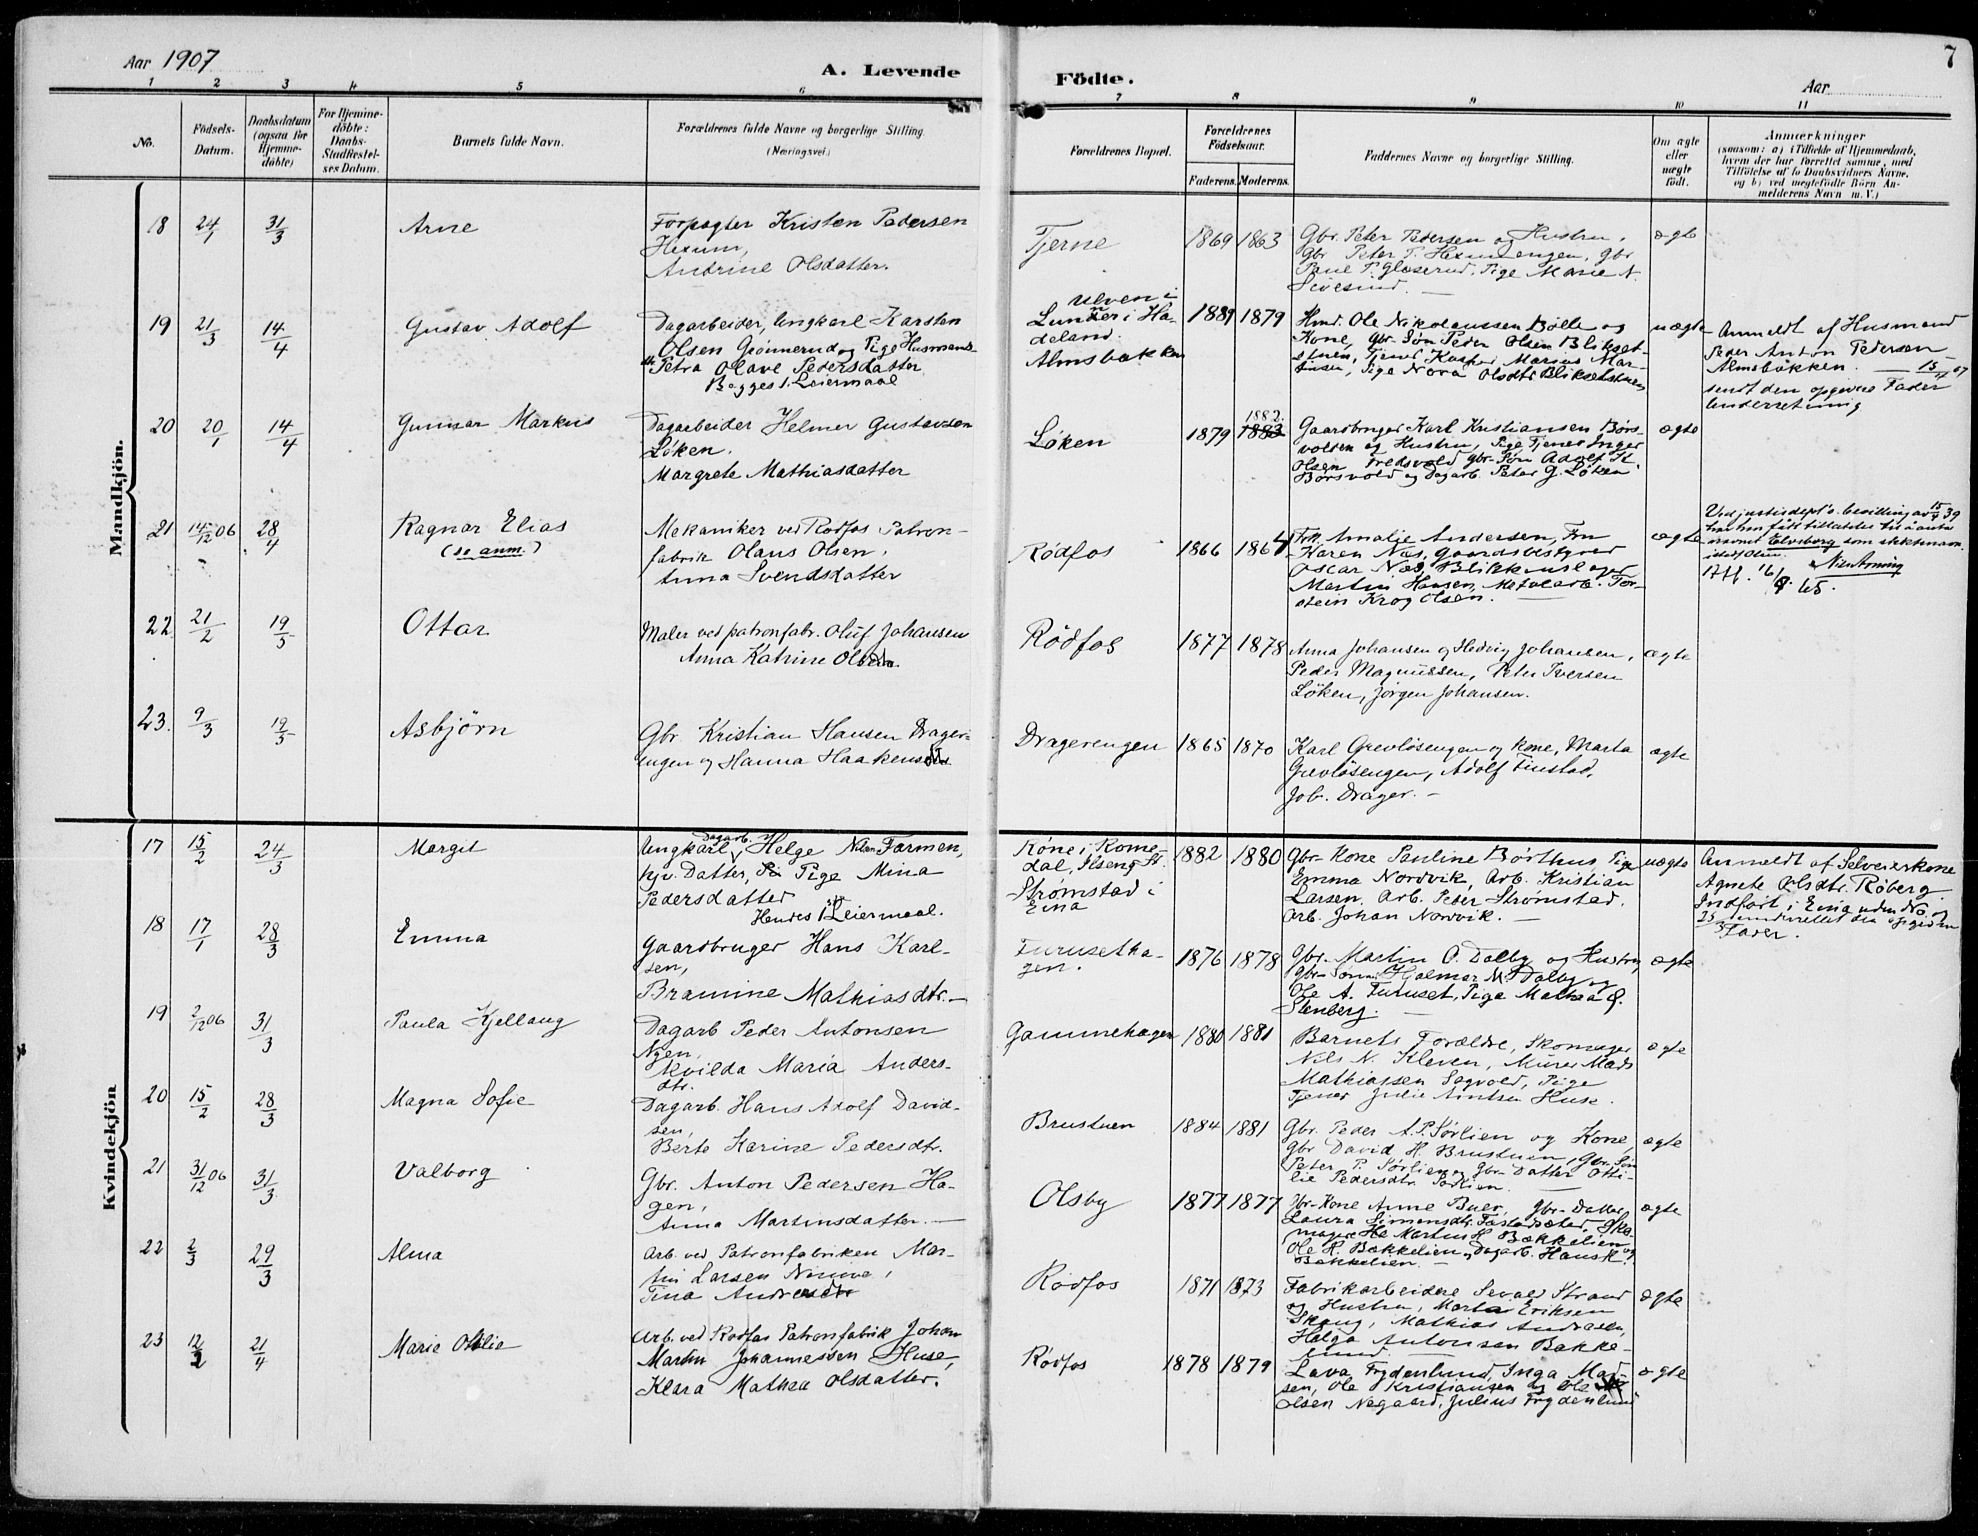 Aar 1907
A. Levende
Födte.
Aar
7
1 2 3 4 5 6 7 8 9 10 11
No.
Födsels-
Datum.
Daabsdatum
(ogsaa for
Hjemme-
döbte)
For Hjemme-
döbte:
Daabs-
Stadfæstel-
ses Datum.
Barnets fulde Navn.
Forældrenes fulde Navne og borgerlige Stilling
(Næringsvei.)
Forældrenes Bopæl.
Forældrenes
Födselsaar.
Faderens. Moderens.
Faddernes Navne og borgerlige Stilling.
Om ægte
eller
uægte
födt.
Anmærkninger
(saasom: a) i Tilfælde af Hjemmedaab,
hvem der har forrettet samme, med
Tilföielse af to Daabsvidners Navne,
og b) ved uægtefödte Börn An-
melderens Navn m. V.)
Mandkjön.
18 24/1 31/3 Arne
Forpagter Kristen Pedersen
Hexum,
Andrine Olsdatter.
Tjerne 1869 1863
Gbr. Peter Pedersen og Hustru,
Gbr Peter P. Hexumengen, Gbr
Paul P. Glæserud, Pige Marie N.
ægte
19 21/3 14/4 Gustav Adolf
Dagarbeider, Ungkarl Karsten
Olsen Grönnerud og Pige Husmands-
dtr Petra Olave Pedersdatter
Begges 1. Leiermaal
Ulven i
Lunner i Ha-
deland.
Almsbakken
1889 1879
Hmd. Ole Nikolaussen Bölle og
Kone, Gbr. Sön Peder Olsen Blikset-
stuen, Tjener Kasper Marius Mar-
tinsen, Pige Nora Olsdtr Bliksetstuen
uægte
Anmeldt af Husmand
Peder Anton Pedersen
Almsbakken. 15/4 07
sendt den opgivne Fader
Underretning
20 20/1 14/4 Gunnar Markus
Dagarbeider Helmer Gustavsen
Löken.
Margrete Mathiasdatter
Löken 1879 1882. 1883
Gaardbruger Karl Kristiansen Börs-
volden og Hustru, Pige Tjener Inger
Olsen Fredsvold, Gbr-Sön Adolf K.
Börsvold og Dagarb. Peter G. Löken.
ægte
21 14/12 06 28/4 Ragnar Elias
(se anm.)
Mekaniker ved Rödfos Patron-
fabrik Olaus Olsen,
Anna Svendsdatter
Rödfos 1866 1864
Frk Amalie Andersen, Fru
Karen Næs, Gaardsbestyrer
Oscar Næs, Blikkenslager
Martin Hansen, Metalarb. Tor-
stein Krog Olsen.
ægte
Ved justisdept's. bevilling av 15/4 39
har han fått tillatelse til å anta
navnet Elvsberg som slektsnavn
istedf. Olsen.
22 21/2 19/5 Ottar
Maler ved patronfabr. Oluf Johansen
Anna Katrine Olsdtr.
Rödfos 1877 1878
Anna Johansen og Hedvig Johansen,
Peder Magnussen, Peter Iversen
Löken, Jörgen Johansen.
ægte
23. 9/3 19/5 Asbjörn
Gbr. Kristian Hansen Drager-
engen og Hanna Haakensdtr.
Dragerengen 1865 1870
Karl Grevlösengen og kone, Marta
Grevlösengen, Adolf Finstad,
Joh. Drager.
ægte
Kvindekjön
17 15/2 24/3 Margit
Ungkarl, Dagarb. Helge Nilsen Farmen,
Gjv. Datter, Pige Mina
Pedersdatter
Hendes 1ste Leiermaal.
Köne i Rome-
dal, Ilseng St.
Strömstad i
Eina
1882 1880
Gbr-Kone Pauline Börthus Pige
Emma Nordvik, Arb. Kristian
Larsen, Arb. Peter Strömstad,
Arb. Johan Nordvik.
uægte
Anmeldt af Selveierkone
Agnete Olsdtr. Röberg.
Indfört i Eina uden No. og
underrettet den opgivne
Fader.
18 17/1 28/3 Emma
Gaardbruger Hans Karl-
sen,
Bramine Mathiasdtr.
Furusetha-
gen.
1876 1878
Gbr. Martin O. Dalby og Hustru
Gbr-Sön Hjalmar M. Dalby og
Ole A. Furuset, Pige Mathea O.
Stenberg.
ægte
19 2/12 06 31/3 Paula Kjellaug
Dagarb Peder Antonsen
Nyen,
Alvilda Maria Anders-
dtr.
Gammehagen 1880 1881
Barnets Forældre, Skomager
Nils N. Kleven, Murer Mads
Mathiassen Sagvold, Pige
Tjener Julie Amtsen Huse.
ægte
20 15/2 28/3 Magna Sofie
Dagarb. Hans Adolf David-
sen,
Berte Karine Pedersdtr.
Brustuen 1884 1881
Gbr. Peder A. P. Sörlien og Kone,
Gbr David H. Brustuen, Gbr. Sön
Peter P. Sörlien og Gbr-Datter Otti-
lie Pedersdtr Sörlien.
ægte
21 31/12 06 31/3 Valborg
Gbr. Anton Pedersen Ha-
gen,
Anna Martinsdatter.
Olsby 1877 1877
Gbr-Kone Anne Buer, Gbr-Datter
Laura Simensdtr. Fastadsæter, Sko-
mager Martin H. Bækkelien
Ole H. Bækkelien, Dagarb. Hans H.
Bækkelien.
ægte
22 2/3 29/3 Alma
Arb. ved Patronfabriken Mar-
tin Larsen Ninive,
Tina Andresdtr
Rödfos 1871 1873
Fabrikarbeidere Sevald Strand
og Hustru, Marta Eriksen
Skaug, Mathias Andrasen,
Helga Antonsen Bække-
lund
ægte
23 12/2 21/4 Marie Otilie
Arb. ved Rödfos Patronfabrik Johan
Martin Johannessen Huse,
Klara Mathea Olsdatter.
Rödfos 1878 1879
Lava Frydenlund, Inga Mad-
sen, Ole Kristiansen og Ole
Olsen Nægaard, Julius Frydenlund
ægte